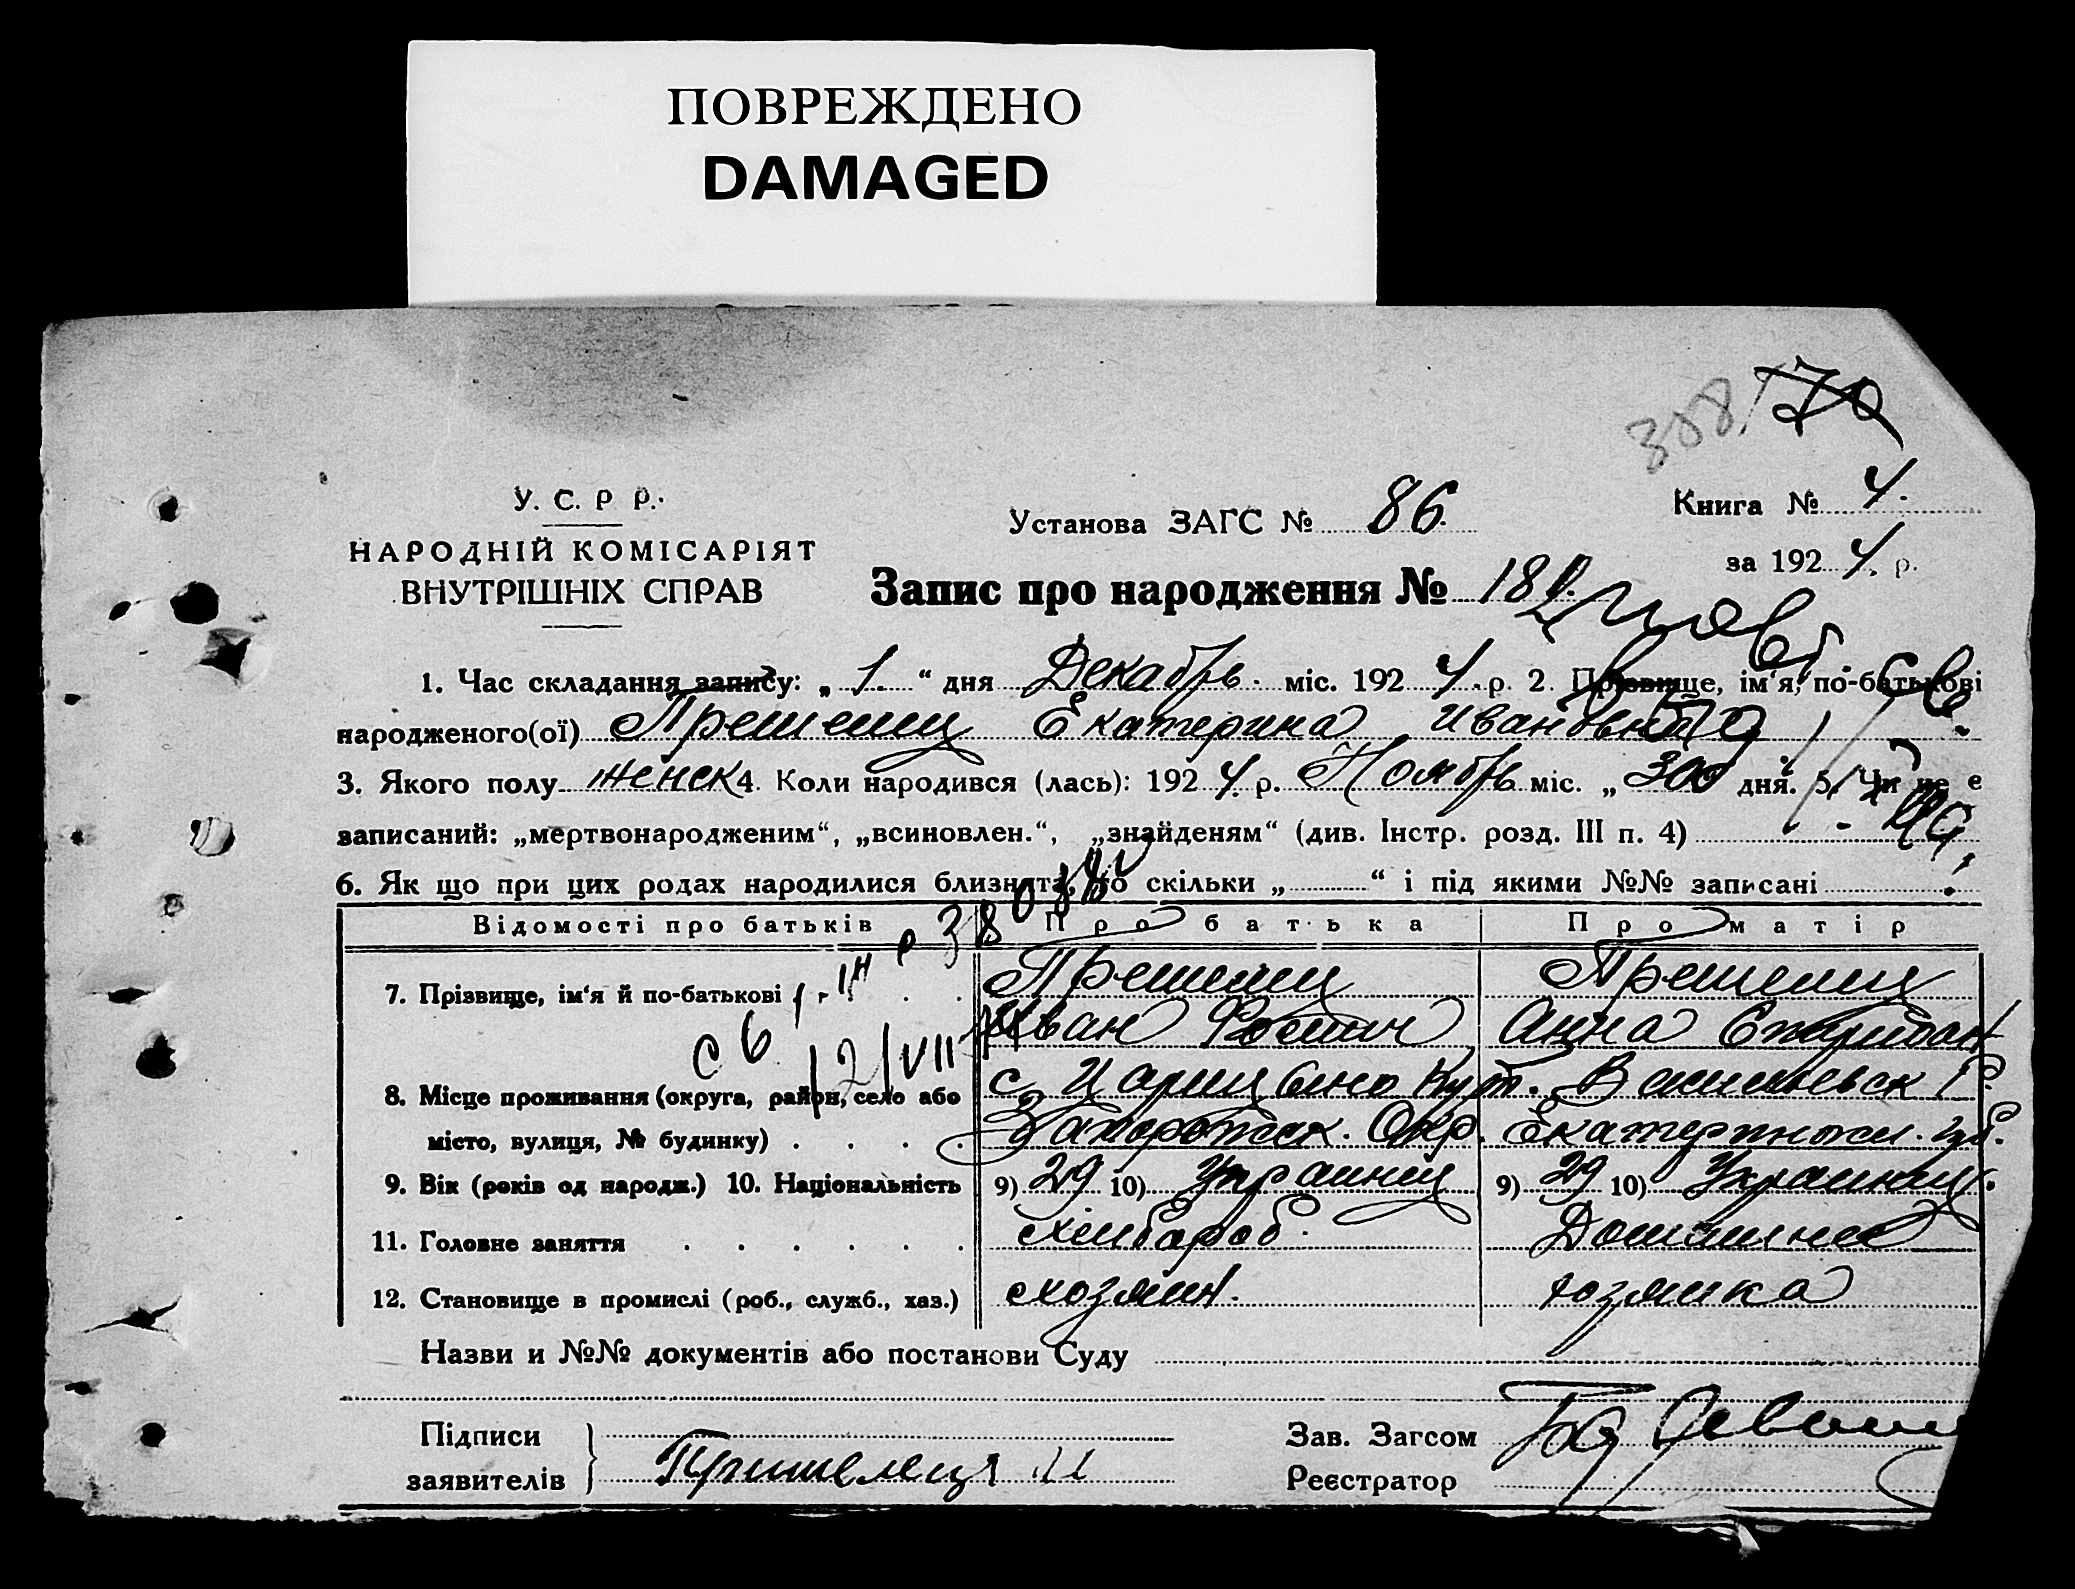 ПОВРЕЖДЕНО
DAMAGED
308 70
У. С. Р Р.
НАРОДНІЙ КОМІСАРІЯТ
ВНУТРІШНІХ СПРАВ
Установа ЗАГС № 86
Книга № 4.
за 1924. р.
Запис про народження №
1. Час складання запису: „ 1. “ дня Декабрь. міс. 1924. р. 2. Прізвище, ім'я, по-батькові
народженого(ої) Екатерина Ивановна
3. Якого полу женск 4. Коли народився (лась): 1924. р. Ноябрь міс. „ 30 дня. 5. Чи не є
записаний: „мертвонародженим“, „всиновлен.“, „знайденям“ (див. Інстр. розд. III п. 4)
6. Як що при цих родах народилися близнята, то скільки „ “ і під якими №№ записані
Відомості про батьків Про батька Про матір
7. Прізвище, ім'я й по-батькові
Иван Анна
12/VII
8. Місце проживання (округа, район, село або с Царицыно Кут. Васильевск
місто, вулиця, № будинку) Запорожск. Окр. Екатериносл. губ.
9. Вік (років од народж.) 10. Національність 9) 29 10) Украинец 9) 29 10)
11. Головне заняття хлебороб. Домашнее
12. Становище в промислі (роб., служб., хаз.) хозяин. хозяйка
Назви и №№ документів або постанови Суду
Підписи
заявителів
Зав. Загсом
Реєстратор